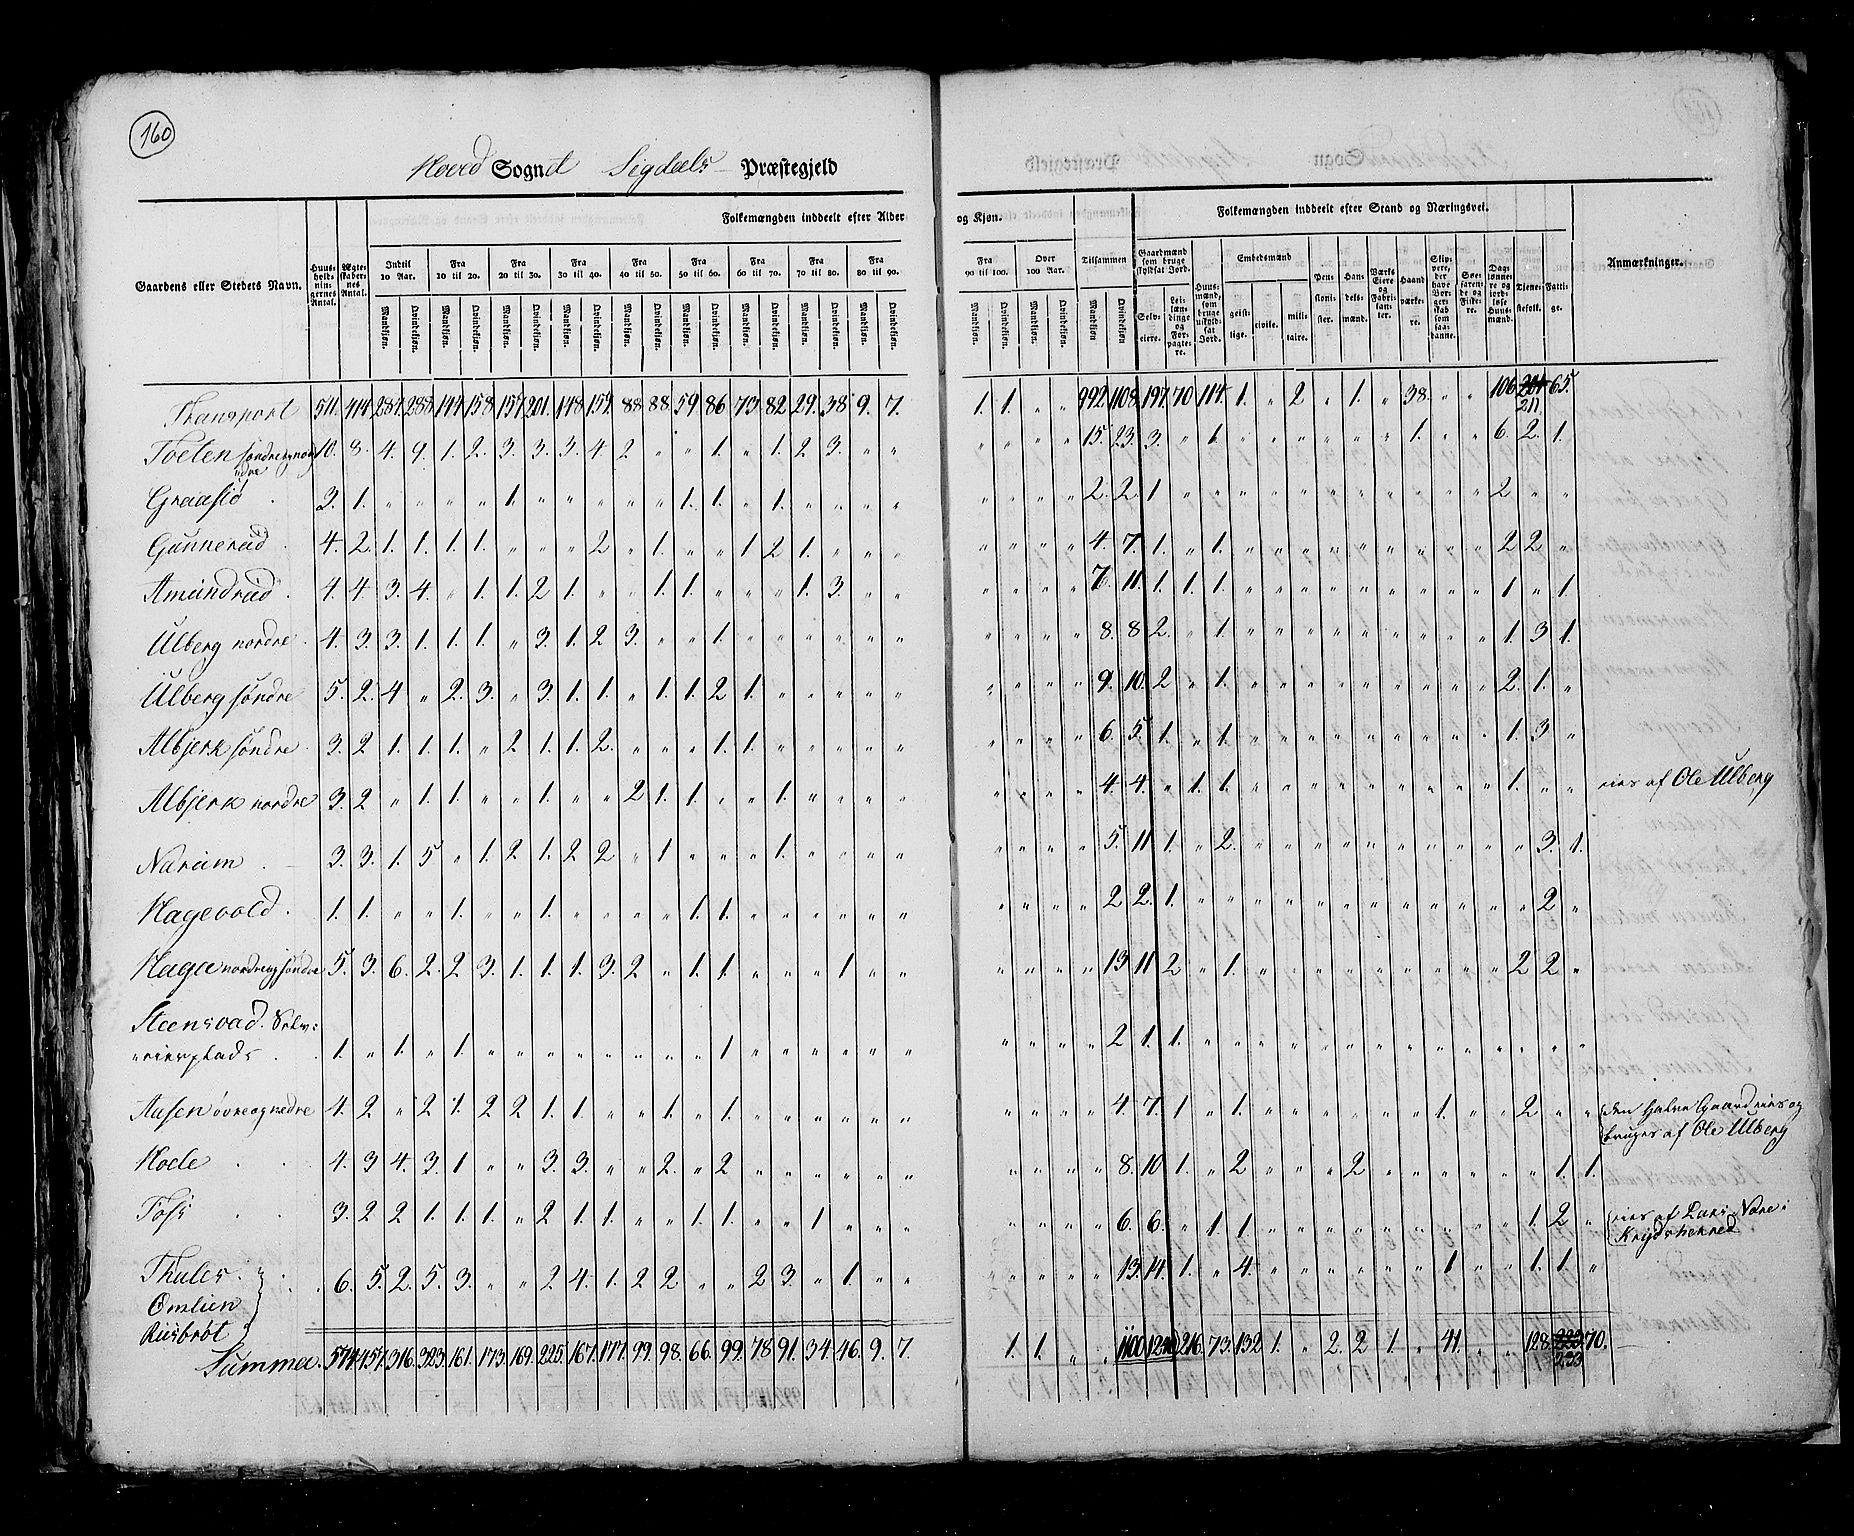 160
Hoved Sognet Sigdals Præstegjeld
Folkemængden inddeelt efter Alder og Kjøn. Folkemængden inddeelt efter Stand og Næringsvei.
Gaardens eller Stedets Navn. Huusholdningernes Antal. Ægteskabernes Antal. Indtil 10 Aar. Fra 10 til 20. Fra 20 til 30. Fra 30 til 40. Fra 40 til 50. Fra 50 til 60. Fra 60 til 70. Fra 70 til 80. Fra 80 til 90. Fra 90 til 100. Over 100 Aar. Tilsammen Gaardmænd som bruge skyldsat Jord. Huusmænd, som bruge uskyldsat Jord. Embedsmænd Pensionister. Handelsmænd. Værks Eiere og Fabrikanter. Haandværkere. Skippere, der have Borgerskab som saadanne. Søefarende og Fiskere. Dagslønnere og jordløse Huusmænd. Tjenestefolk. Fattige. Anmærkninger.
Mandkjøn. Qvindekjøn. Selveiere. Leilændinge og Forpagtere. geistlige. civile. militaire.
Transport 511. 414. 287. 288. 144. 158. 157. 201. 148. 159. 88. 88. 59. 86. 73. 82. 29. 38. 9. 7. 1. 1. " " 992. 1108. 197. 70. 114. 1. " 2 " 1. " 38. " " 106. 211. 65.
Toeten søndre og nordre 10. 8. 4. 9. 1. 2. 3. 3. 3. 4. 2 " " 1. " 1. 2 3. " " " " " " 15. 23. 3. " 1. " " " " " " 1. " " 6. 2. 1.
Graaslid 3. 1. " " " " 1. " " " " " 1. 1. " 1. " " " " " " " " 2. 2. 1 " " " " " " " " " " " 2 " "
Gunnerud 4. 2. 1. 1. 1. 1. " " " 2 " 1. " " 1 2 1. " " " " " " " 4. 7. 1. " 1. " " " " " " " " " 2 2 "
Amundrud 4. 4. 3. 4. " 1. 1. 2 1. " " 1. 1. " " " 1. 3. " " " " " " 7. 11. 1. 1. 1. " " " " " " " " " 1 " 1
Ulberg nordre 4. 3. 3. 1. 1. 1. " 3. 1. 2 3. " " 1. " " " " " " " " " " 8. 8 2. " 1. " " " " " " " " " 1. 3 1.
Ulberg søndre 5. 2. 4 " 2. 3. " 3. 1. 1. " 1. 1. 2 1. " " " " " " " " " 9. 10. 2 " 1. " " " " " " " " " 2. 1. "
Albjerk søndre 3. 2 1. 1. 1. " 2 1. 1. 2. " " " 1. 1. " " " " " " " " " 6. 5. 1. " 1. " " " " " " " " " 1. 3. "
Albjerk nordre 3. 2 " 1. 1. " " 1. " " 2 1. 1. " " 1. " " " " " " " " 4. 4. " 1. 1. " " " " " " " " " 1. " " eies af Ole Ulberg
Narum 3. 3. 1. 5 " 1. 2 1. 2 2 " 1 " " " 1. " " " " " " " " 5. 11 1. " 2. " " " " " " " " " " 3. 1.
Hagevold 1. 1. " " 1. " " 1. " " " " 1. 1. " " " " " " " " " " 2 2. 1. " " " " " " " " " " " " 2 "
Haga nordre og søndre 5. 3. 6. 2. 2 3. 1. 1. 1. 3. 2 " 1. 1. " " " 1 " " " " " " 13. 11 2 " 1. " " " " " " " " " 2 2 "
Steensvad. Selv-
eierplads 1. " 1. " 1. " " " " " " " " 1. " " " " " " " " " " 2 1. 1. " " " " " " " " " " " " " "
Aasen øvre og nedre 4. 2 " 2 1. 2 2 1. 1. " " 1. " 1. " " " " " " " " " " 4. 7. 1 " 1. " " " " " " 1. " " 2 " " den halve Gaard eies og
bruges af Ole Ulberg
Hoele 4. 3 4. 3. 1 " " 3. 3. " " 2. " 2 " " " " " " " " " " 8. 10 1. " 2 " " " 2 " " " " " " 1. 1.
Foss 3. 2 2 1. 1. 1. " 2 1. 1. " " 1. 1. " " 1 " " " " " " " 6. 6. " 1. 1. " " " " " " " " " 1. 2 " eies af Lars Nære i
Krydsherred
Thules
Omlien 6. 5. 2. 5. 3. " " 2 4. 1. 2 2 " " 2 3. " 1. " " " " " " 13. 14. 1. " 4. " " " " " " 1 " " 1. 1. "
Ruisbrøt
Summa. 574. 457. 316. 323. 161. 173. 169. 225. 167. 177. 99. 98. 66. 99. 78. 91. 34. 46. 9. 7. 1. 1. " " 1100. 1240 216. 73. 132 1. " 2. 2 1. " 41. " " 128. 233 70.